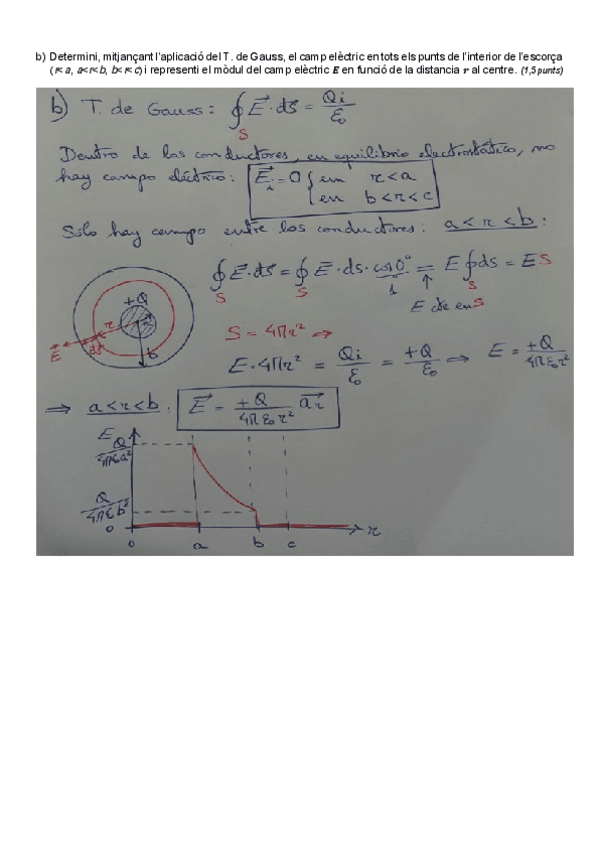 b) Determini, mitjançant l'aplicació del T. de Gauss, el camp elèctric en tots els punts de l'interior de l'escorça
(r<a, a<r<b, b<r<c) i representi el mòdul del camp elèctric E en funció de la distancia r al centre. (1,5 punts)
b) T. de Gauss: ∮_S E⃗ · ds⃗ = Qi/ε₀
Dentro de los conductores, en equilibrio electrostático, no
hay campo eléctrico: E⃗i = 0 { en r < a
en b < r < c
Solo hay campo entre los conductores: a < r < b :
∮_S E⃗ · ds⃗ = ∮_S E · ds · cos 0° = E ∮_S ds = E S
1
E cte en S
+Q
r
a
b
E⃗
ds⃗
S = 4πr² ⇒
E · 4πr² = Qi/ε₀ = +Q/ε₀ ⇒ E = +Q/4πε₀r²
⇒ a < r < b : E⃗ = +Q/4πε₀r² a⃗r
E
Q/4πε₀a²
Q/4πε₀b²
0
0 a b c r